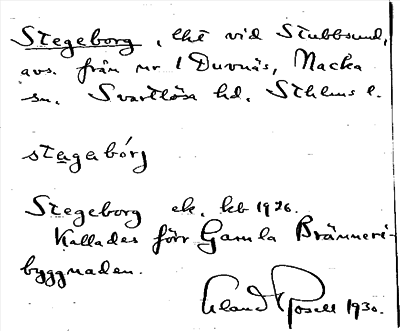 Stegeborg, lht vid Stubbsund,
avs. från nr 1 Duvnäs, Nacka
sn. Svartlösa hd. Sthlms l.
stegabórj
Stegeborg ek. kb 1926.
Kallades förr Gamla Bränneri-
byggnaden.
Rosell 1930.